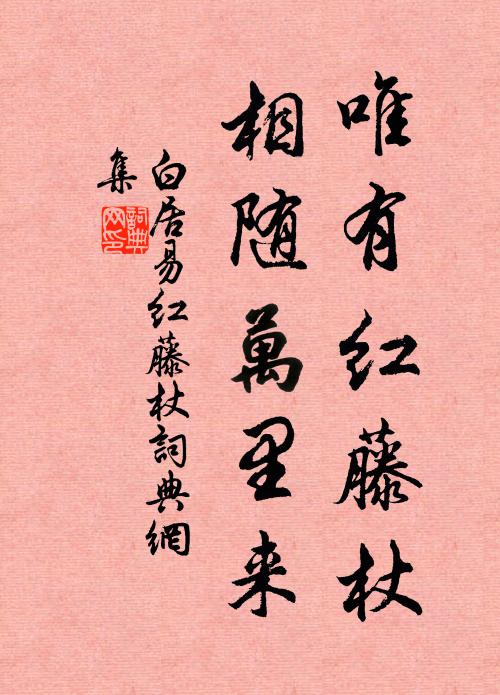 唯有红藤杖
相随萬里来
白居易红藤杖詞典網
集
詞典
网印